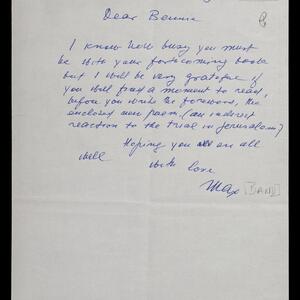 Dear Bennie
I know how busy you must
be with your forthcoming book
but I will be very grateful if
you will find a moment to read,
before you write the foreword, the
enclosed new poem. (an indirect
reaction to the trial in Jerusalem)
Hoping you are all
well
With love
Max [BAND]